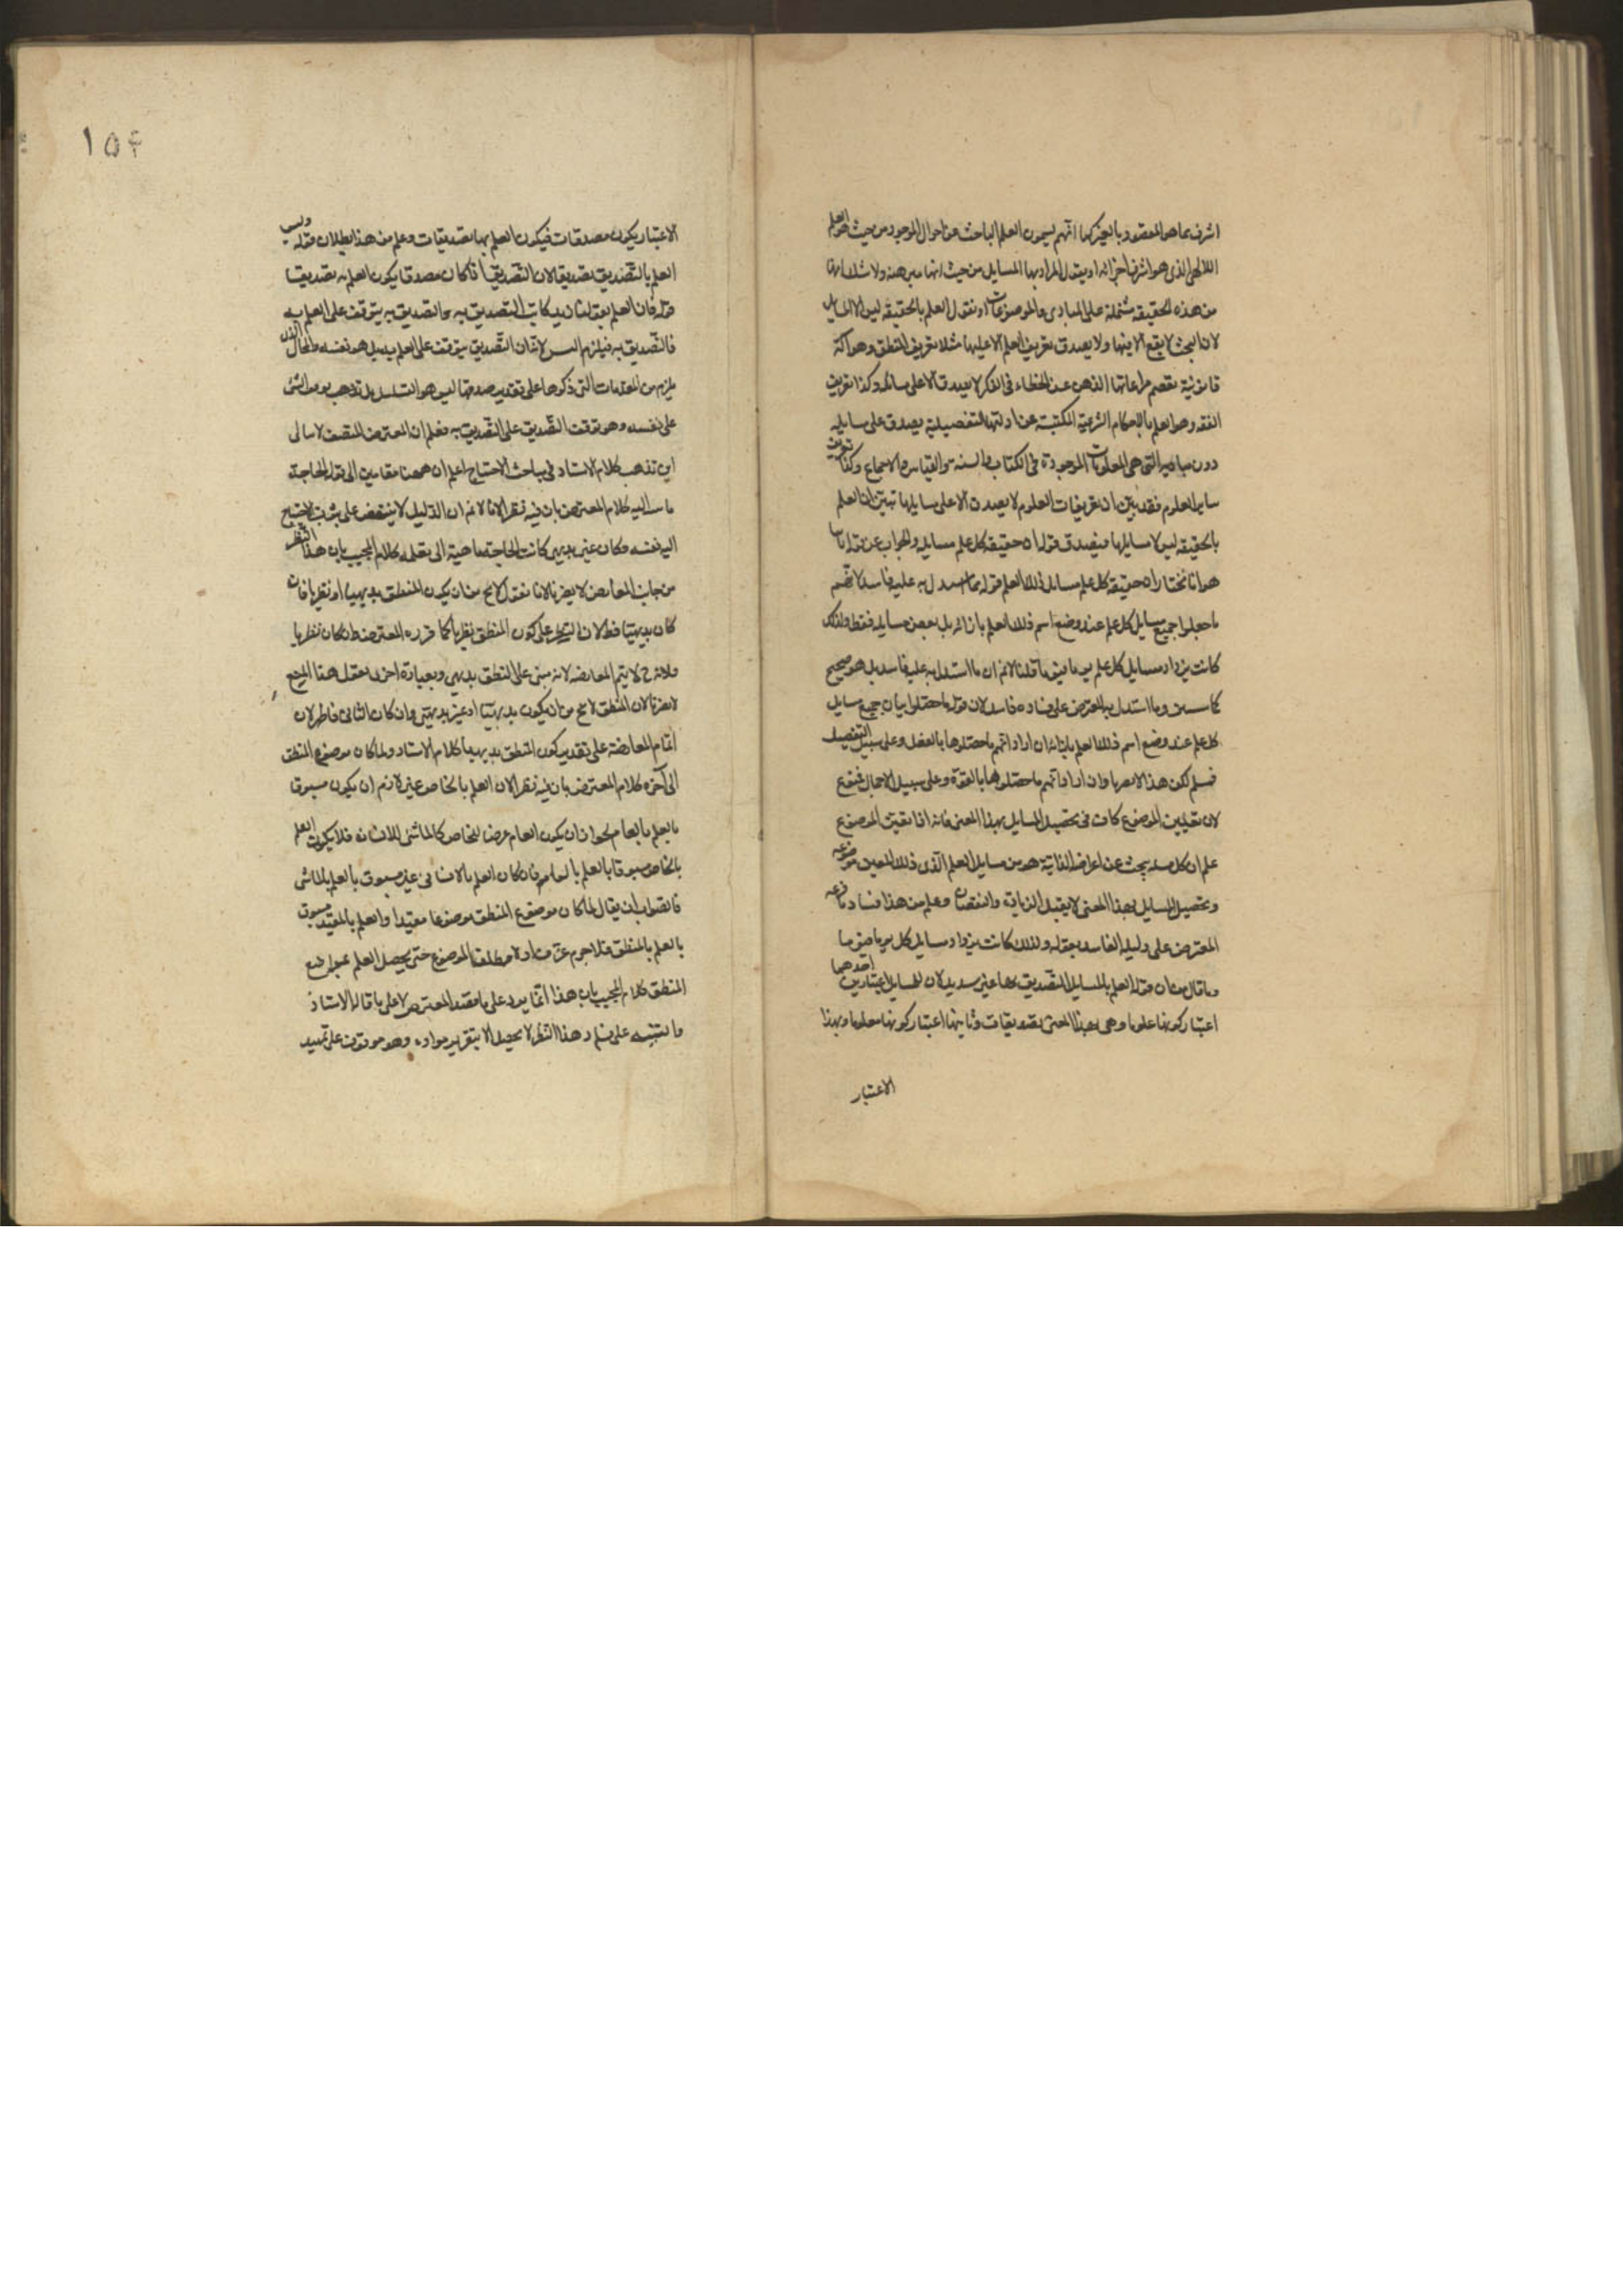 اشرف مما هو المقصود بالعرض كما انهم يسمون العلم الباحث عن احوال الموجود من حيث هو العلم
الالهى الذى هو اشرف اجزائه او يقال المراد بها المسايل من حيث انها مبرهنة ولا شك انها
من هذه الحقيقة مشتملة على المبادى والموضوعات او نقول العلم بالحقيقة ليس الا المسايل
لان البحث لا يقع الا فيها ولا يصدق تعريف العلم الا عليها مثلا تعريف المنطق وهو آلة
قانونية تعصم مراعاتها الذهن عن الخطاء فى الفكر لا يصدق الا على مسائله وكذا تعريف
الفقه وهو العلم بالاحكام الشرعية المكتسبة عن ادلتها التفصيلية يصدق على مسايله
دون مباديه التى هى المعلومات الموجودة فى الكتاب والسنة والقياس والاجماع وكذا تعريف
ساير العلوم فقد تبين ان تعريفات العلوم لا يصدق الا على مسايلها تبين ان العلم
بالحقيقة ليس الا مسايلها فيصدق قوله ان حقيقة كل علم مسايله والجواب عن قوله انا
هو انا نختار ان حقيقة كل علم مسايل ذلك العلم قوله ما استدل به عليه فاسد لانهم
ما جعلوا جميع مسايل كل علم عند وضع اسم ذلك العلم بازائه بل بعض مسايله فقط ولذلك
كانت يزداد مسايل كل علم يوما فيوما قلنا لانم ان ما استدل به عليه فاسد بل هو صحيح
كما وما استدل به المعترض على فساده فاسد لان قوله ما حصلوا جميع مسايل
كل علم عند وضع اسم ذلك العلم بازائه ان اراد انهم ما حصلوها بالفعل وعلى سبيل التفصيل
فمسلم لكن هذا لا يضرنا وان اراد انهم ما حصلوها بالقوة وعلى سبيل الاجمال فممنوع
لان تعيين الموضوع كاف فى تحصيل المسايل بهذا المعنى فانه اذا تعين الموضوع
علم ان كل مسئلة يبحث عن اعراضه الذاتية هو من مسايل العلم الذى ذلك المعين موضوعه
وتحصيل المسايل بهذا المعنى لا يقبل الزيادة والنقصان وعلم من هذا فساد ما فرعه
المعترض على دليله الفاسد بقوله ولذلك كانت يزداد مسايل كل يوما فيوما
وما قال من ان قوله العلم بالمسايل التصديق بها غير سديد لان للمسايل اعتبارين احدهما
اعتبار كونها علوما وهى بهذا المعنى تصديقات وثانيها اعتبار كونها معلوما وبهذا
الاعتبار
١٥٤
الاعتبار يكون مصدقات فيكون العلم بها تصديقات وعلم من هذا بطلان قوله وليس
العلم بالتصديق تصديقا لان التصديق اذا كان مصدقا يكون العلم به تصديقا
قوله فان العلم بقولنا زيد كاتب التصديق به والتصديق به يتوقف على العلم به
فالتصديق به فيلزم الدور لانم ان التصديق يتوقف على العلم به بل هو نفسه والمحال الذى
يلزم من المقدمات التى ذكرها على تقدير صدقها ليس هو التسلسل بل توقف الشئ
على نفسه وهو توقف التصديق على التصديق به فعلم ان المعترض المتصف لا يبالى
اين تذهب كلام الاستاد فى مباحث الاحتياج اعلم ان ههنا مقامين الى قوله الحاجة
ماسة اليه كلام المعترض بان فيه نظر الانا لانم ان الدليل لا ينتهض على بثبت الاحتياج
اليه نفسه وكان غير بديهى كانت الحاجة ماسة الى تعلمه كلام المجيب بان هذا النظر
من جانب المعارض لا يضرنا لانا نقول لا يخ من ان يكون المنطق بديهيا او نظريا فان
كان بديهيا فظ لان النظر على كون المنطق نظريا كما قرره المعترض وان كان نظريا
فلانه ح لا يتم المعارضة لانه مبنى على المنطق بديهى وبعبارة اخرى نقول هذا المنع
لا يضرنا لان المنطق لا يخ من ان يكون بديهيا او غير بديهى وان كان الثانى فظاهر لان
اتمام المعارضة على تقدير كون المنطق بديهيا كلام الاستاد ولما كان موضوع المنطق
الى آخره كلام المعترض بان فيه نظرا لان العلم بالخاص غير لازم ان يكون مسبوقا
بالعلم بالعام لجواز ان يكون العام عرضا للخاص كالماشى للانسان فلا يكون العلم
بالخاص مسبوقا بالعلم بالعام فان كان العلم بالانسان غير مسبوق بالعلم بالماشى
فالصواب ان يقال لما كان موضوع المنطق موضوعا مقيدا والعلم بالمقيد مسبوق
بالعلم بالمطلق فلا جرم عرف اولا مطلق الموضوع حتى يحصل العلم بموضوع
المنطق كلام المجيب بان هذا انما يرد على ما فهمه المعترض لا على ما قاله الاستاذ
والتنبيه على فساد هذا النظر لا يحصل الا بتقرير مواده وهو موقوف على تمهيد